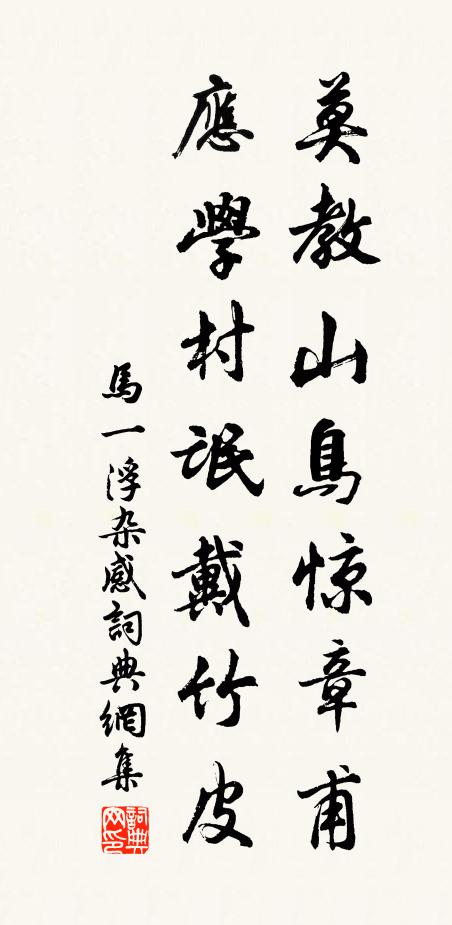 莫教山鳥惊章甫
應學村氓戴竹皮
馬一浮杂感詞典網集
詞典网印